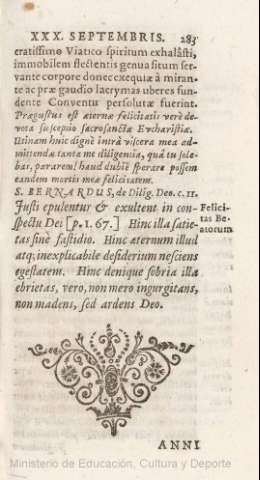 XXX. SEPTEMBRIS. 283
cratissimo Viatico spiritum exhalâsti,
immobilem flectentis genua situm ser-
vante corpore donec exequiæ à miran-
te ac præ gaudio lacrymas uberes fun-
dente Conventu persolutæ fuerint.
Prægustus est æternæ felicitatis verè de-
vota susceptio sacrosanctæ Eucharistiæ.
Utinam huic dignè intrà viscera mea ad-
mittendæ tanta me diligentia, quâ tu sole-
bas, pararem! haud dubiè sperare possem
eandem mortis meæ felicitatem.
S. BERNARDUS, de Dilig. Deo. c. 11.
Justi epulentur & exultent in con-
spectu Dei [p. 1. 67.] Hinc illa satie-
tas sinè fastidio. Hinc æternum illud
atq; inexplicabile desiderium nesciens
egestatem. Hinc denique sobria illa
ebrietas, vero, non mero ingurgitans,
non madens, sed ardens Deo.
Felici-
tas Be-
atorum
ANNI
Ministerio de Educación, Cultura y Deporte